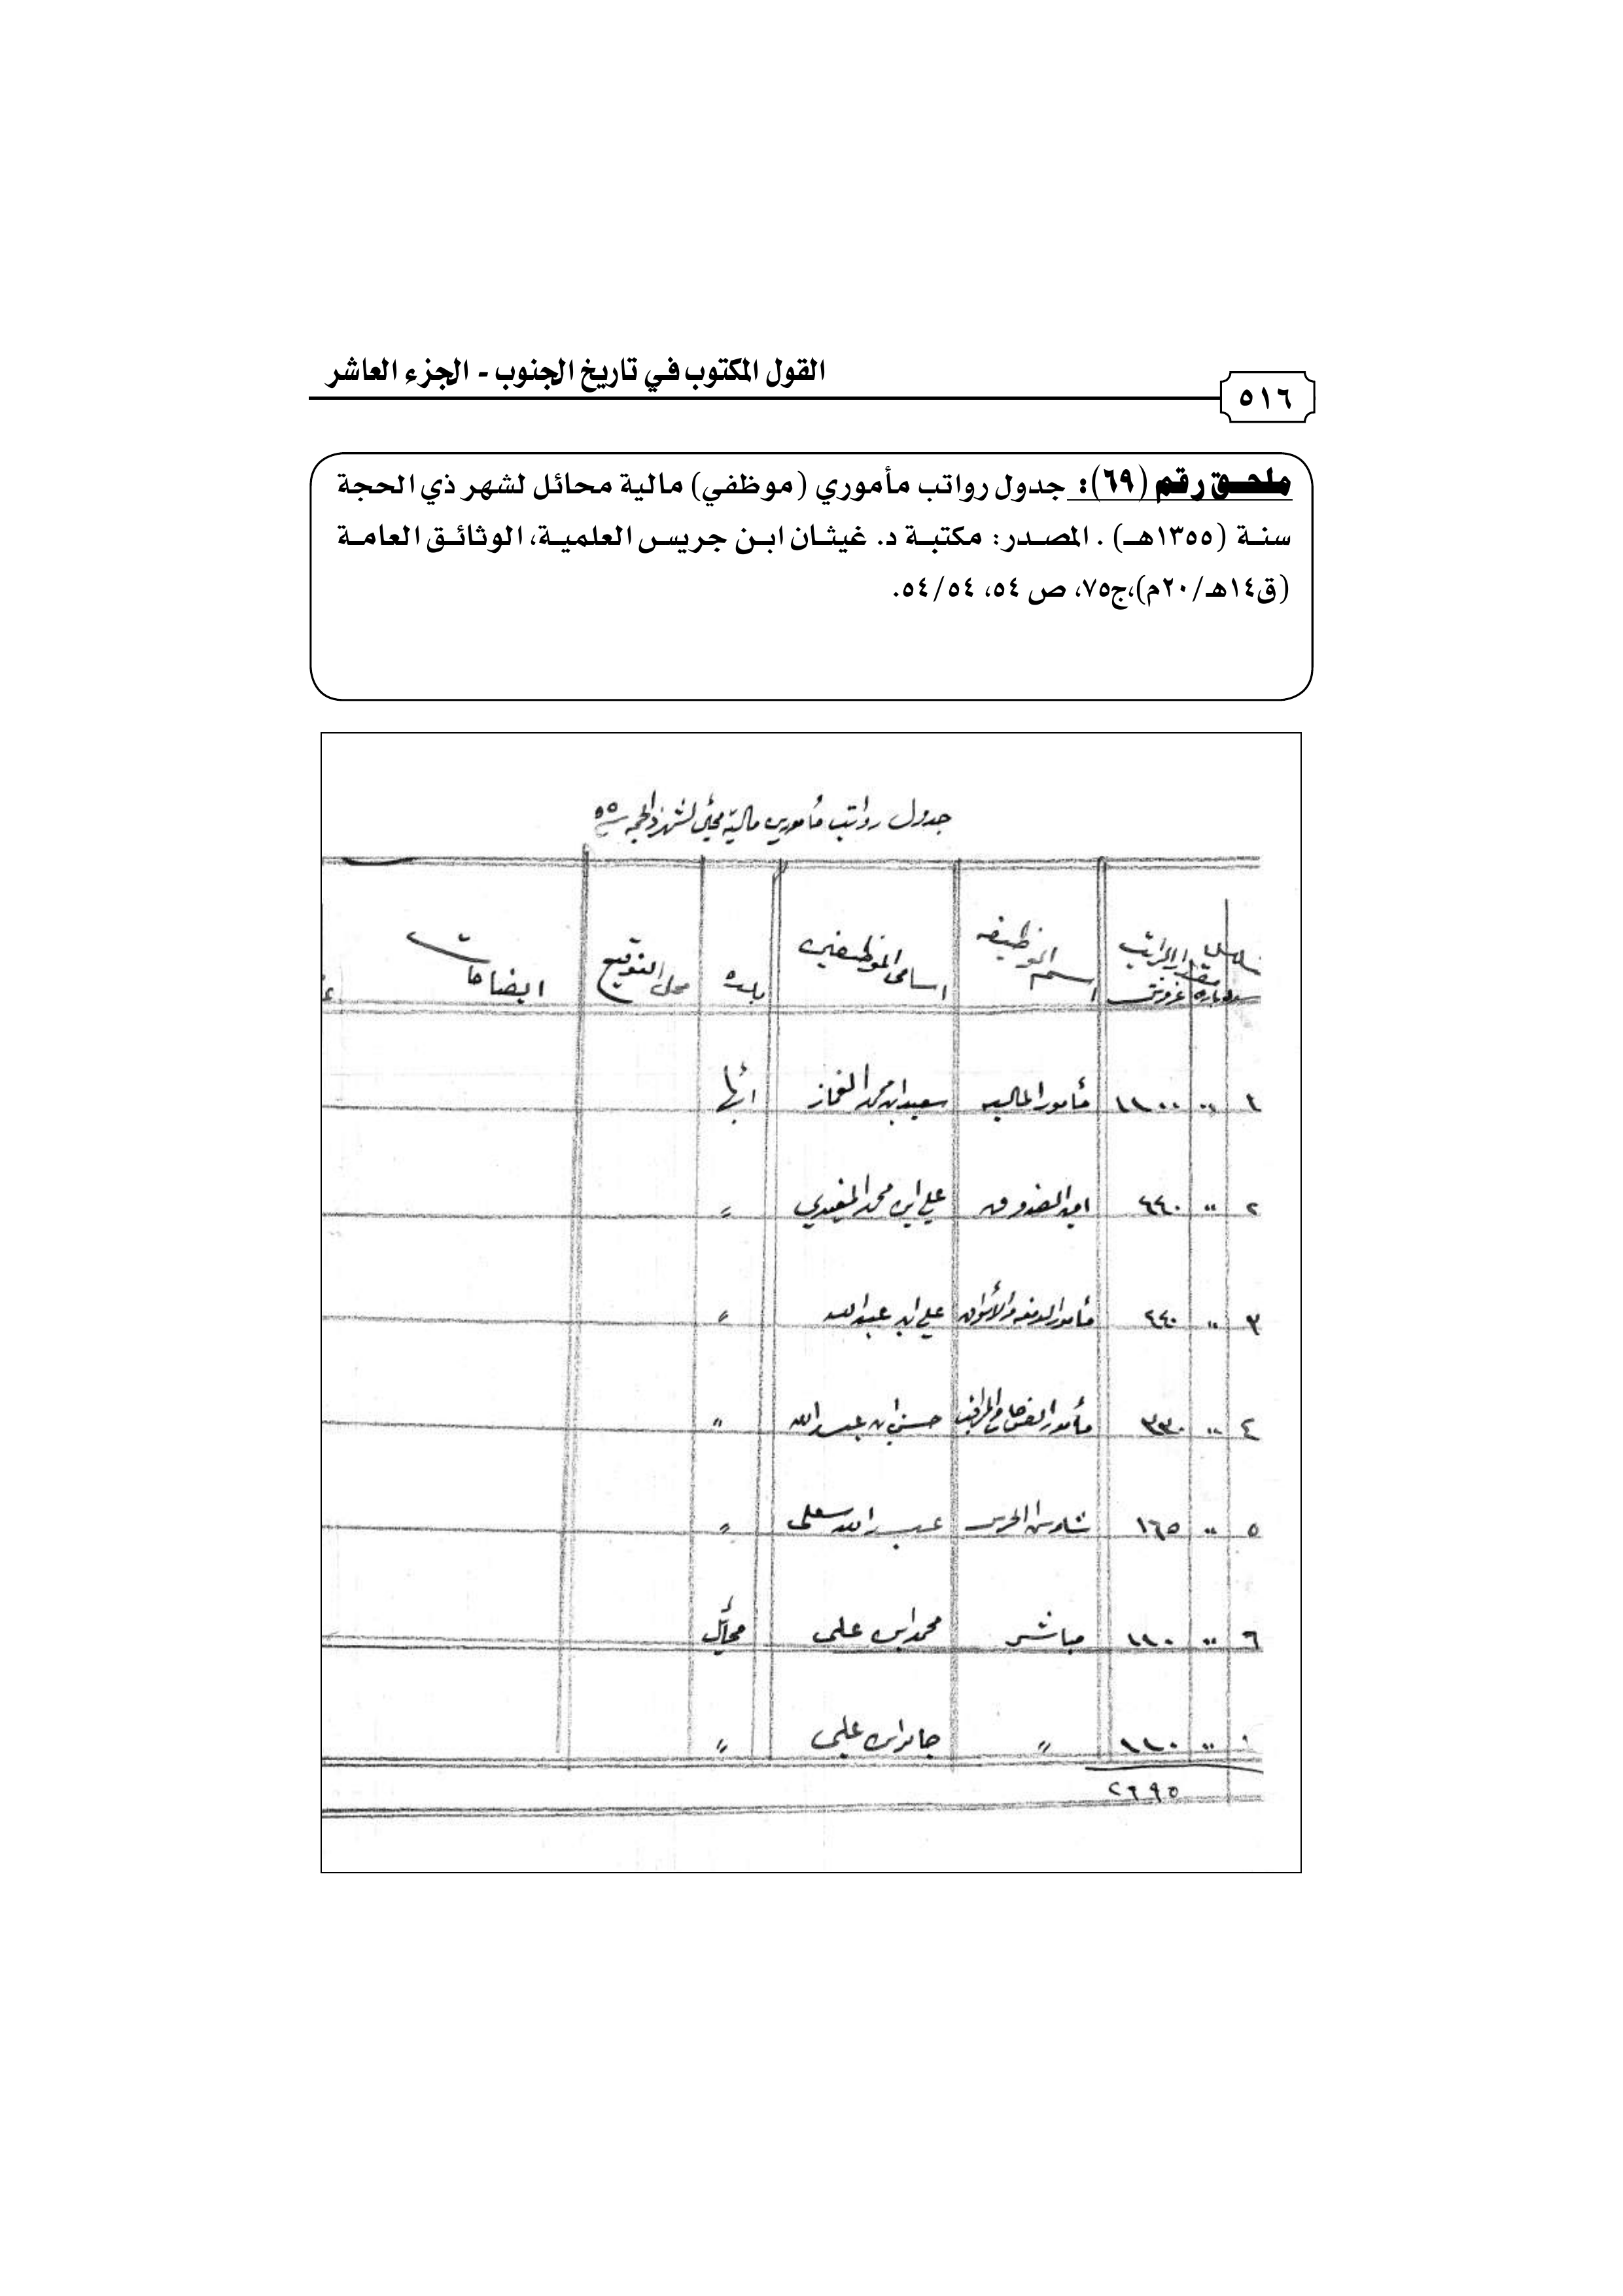 القول المكتوب في تاريخ الجنوب - الجزء العاشر
٥١٦
ملحق رقم (٦٩): جدول رواتب مأموري (موظفي) مالية محائل لشهر ذي الحجة
سنة (١٣٥٥هـ) . المصدر: مكتبة د. غيثان ابن جريس العلمية، الوثائق العامة
(ق١٤هـ/٢٠م)،ج٧٥، ص ٥٤، ٥٤/٥٤.
جدول رواتب مأمورين مالية محائل لشهر ذالحجه سنه ٥٥
مقدار الراتب اسم الوظيفه اسامى الموظفين بلده محل التوقيع ايضاحات
باره غروش
١ ٠٠ ١١٠٠ مأمور الماليه سعيد ابن محمد الغماز ابها
٢ ٠٠ ٤٤٠ امين الصندوق علي ابن محمد المفيدي ״
٣ ٠٠ ٤٤٠ مأمور علي ابن عبدالله ״
٤ ٠٠ ٣٣٠ مأمور حسن ابن عبدالله ״
٥ ٠٠ ١٦٥ شاوش الحرس عبدالله علي ״
٦ ٠٠ ١١٠ مباشر محمد ابن علي محائل
٠٠ ١١٠ ״ جابر ابن علي ״
٢٦٩٥